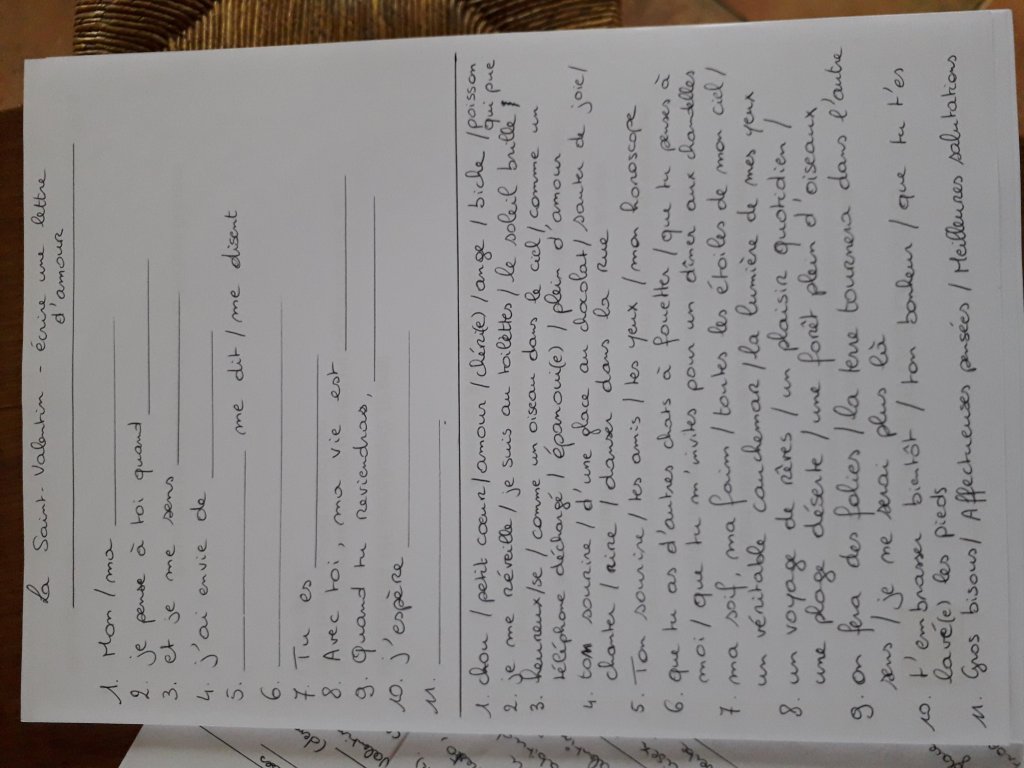 La Saint-Valentin - écrire une lettre
d'amour
1. Mon/ma
2. je pense à toi quand
3. et je me sens
4. j'ai envie de
5. me dit/me disent
6.
7. Tu es
8. Avec toi, ma vie est
9. Quand tu reviendras,
10. j'espère
11.
1. chou/petit cœur/amour/chéri(e)/ange/biche/poisson qui pue
2. je me réveille/je suis au toilettes/le soleil brille/
3. heureux/se/comme un oiseau dans le ciel/comme un
téléphone déchargé/épanoui(e)/plein d'amour
4. ton sourire/d'une glace au chocolat/sauter de joie/
chanter/rire/danser dans la rue
5. Ton sourire/tes amis/tes yeux/mon horoscope
6. que tu as d'autres chats à fouetter/que tu penses à
moi/que tu m'invites pour un dîner aux chandelles
7. ma soif, ma faim/toutes les étoiles de mon ciel/
un véritable cauchemar/la lumière de mes yeux
8. un voyage de rêves/un plaisir quotidien/
une plage déserte/une forêt plein d'oiseaux
9. on fera des folies/la terre tournera dans l'autre
sens/je ne serai plus là
10. t'embrasser bientôt/ton bonheur/que tu t'es
lavé(e) les pieds
11. Gros bisous/Affectueuses pensées/Meilleures salutations